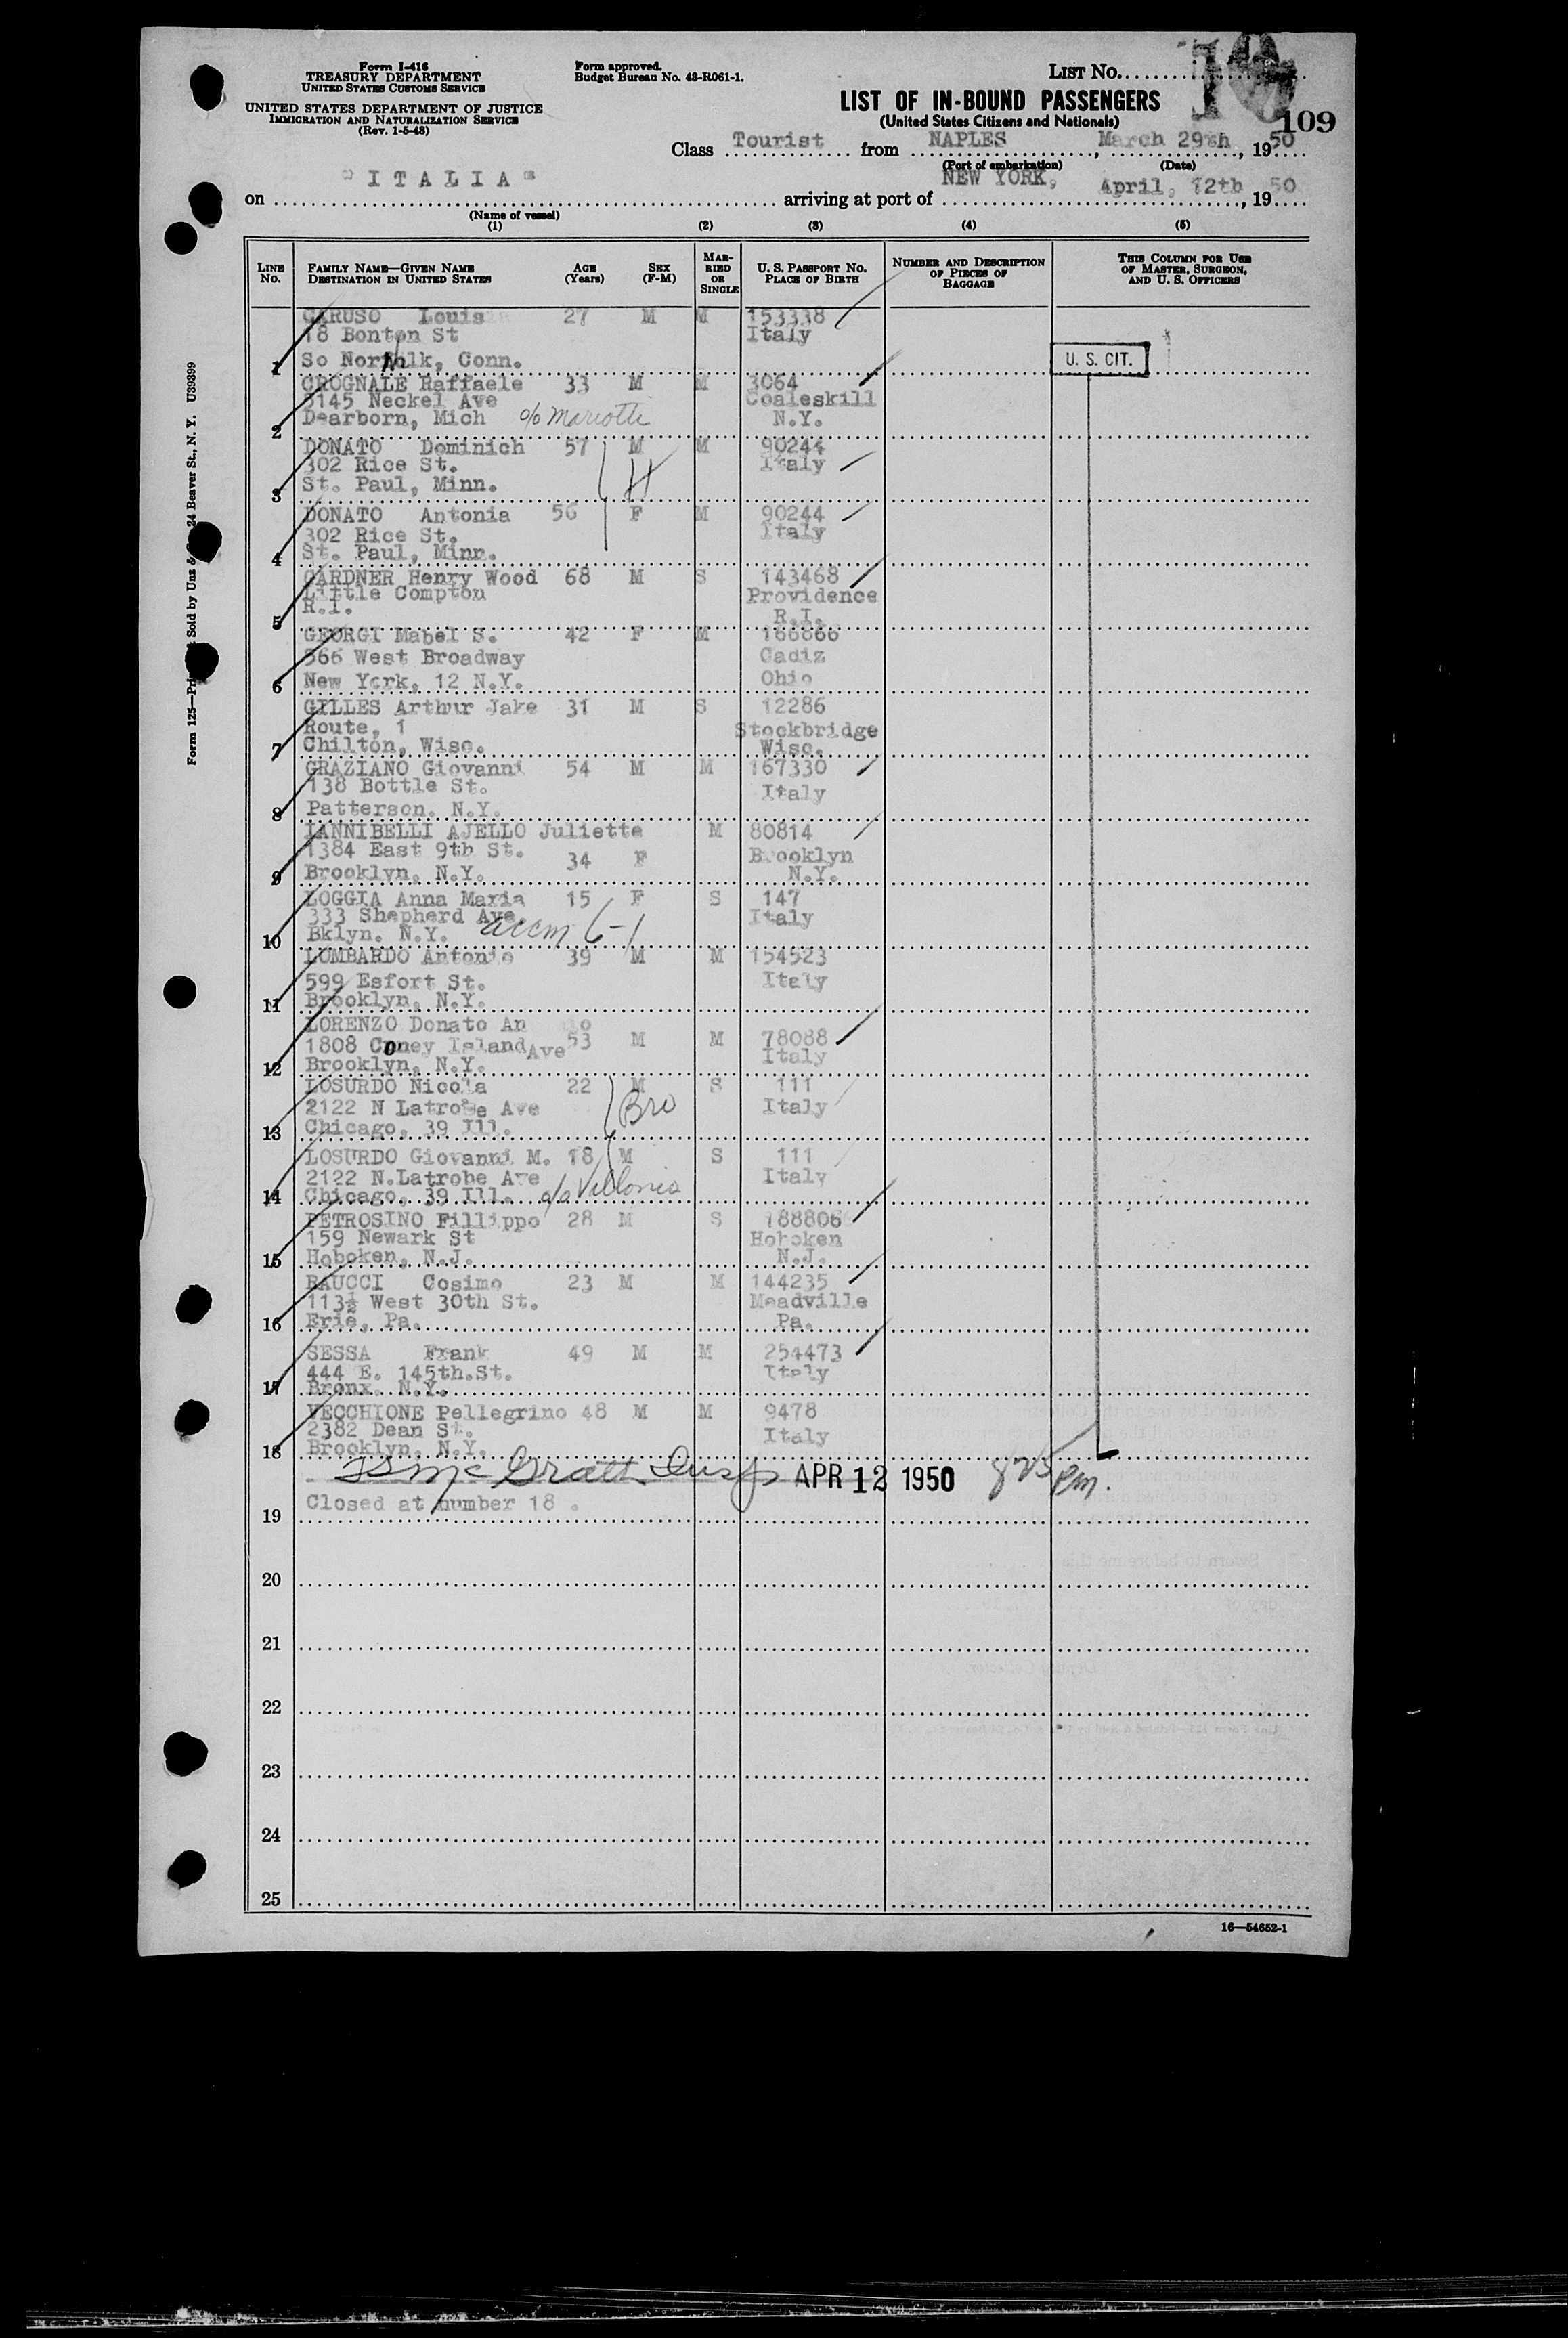 Form I-416
TREASURY DEPARTMENT
UNITED STATES CUSTOMS SERVICE
UNITED STATES DEPARTMENT OF JUSTICE
IMMIGRATION AND NATURALIZATION SERVICE
(Rev. 1-5-48)
Form approved.
Budget Bureau No. 43-R061-1.
LIST No.
10
109
LIST OF IN-BOUND PASSENGERS
(United States Citizens and Nationals)
Class Tourist from NAPLES, March 29th, 1950
(Port of embarkation) (Date)
on "ITALIA" arriving at port of NEW YORK, April, 12th, 1950
(Name of vessel)
(1) (2) (3) (4) (5)
LINE No. FAMILY NAME—GIVEN NAME DESTINATION IN UNITED STATES AGE (Years) SEX (F-M) MARRIED OR SINGLE U. S. PASSPORT NO. PLACE OF BIRTH NUMBER AND DESCRIPTION OF PIECES OF BAGGAGE THIS COLUMN FOR USE OF MASTER, SURGEON, AND U. S. OFFICERS
CARUSO Louis 27 M M 153338
18 Bonton St Italy
1 So Norwalk, Conn. U. S. CIT.
CROGNALE Raffaele 33 M M 3064
3145 Neckel Ave Coaleskill
2 Dearborn, Mich c/o Mariotti N.Y.
DONATO Dominich 57 M M 90244
302 Rice St. H Italy
3 St. Paul, Minn.
DONATO Antonia 56 F M 90244
302 Rice St. Italy
4 St. Paul, Minn.
GARDNER Henry Wood 68 M S 143468
Little Compton Providence
5 R.I. R.I.
GEORGI Mabel S. 42 F M 166666
566 West Broadway Cadiz
6 New York, 12 N.Y. Ohio
GILLES Arthur Jake 31 M S 12286
Route, 1 Stockbridge
7 Chilton, Wisc. Wisc.
GRAZIANO Giovanni 54 M M 167330
138 Bottle St. Italy
8 Patterson. N.Y.
IANNIBELLI AJELLO Juliette M 80814
1384 East 9th St. 34 F Brooklyn
9 Brooklyn. N.Y. N.Y.
LOGGIA Anna Maria 15 F S 147
333 Shepherd Ave. Italy
10 Bklyn. N.Y. accm 6-1
LOMBARDO Antonio 39 M M 154523
599 Esfort St. Italy
11 Brooklyn, N.Y.
LORENZO Donato
1808 Coney Island Ave 53 M M 78088
12 Brooklyn, N.Y. Italy
LOSURDO Nicola 22 M S 111
2122 N Latrobe Ave Bro Italy
13 Chicago, 39 Ill.
LOSURDO Giovanni M. 18 M S 111
2122 N.Latrobe Ave Italy
14 Chicago, 39 Ill. c/o
PETROSINO Fillippo 28 M S 188806
159 Newark St Hoboken
15 Hoboken, N.J. N.J.
RAUCCI Cosimo 23 M M 144235
113½ West 30th St. Meadville
16 Erie, Pa. Pa.
SESSA Frank 49 M M 254473
444 E. 145th.St. Italy
17 Bronx. N.Y.
VECCHIONE Pellegrino 48 M M 9478
2382 Dean St. Italy
18 Brooklyn. N.Y.
McGrath Insp APR 12 1950 825 Pm.
Closed at number 18 .
19
20
21
22
23
24
25
16—54652-1
24 Beaver St., N. Y. U39399